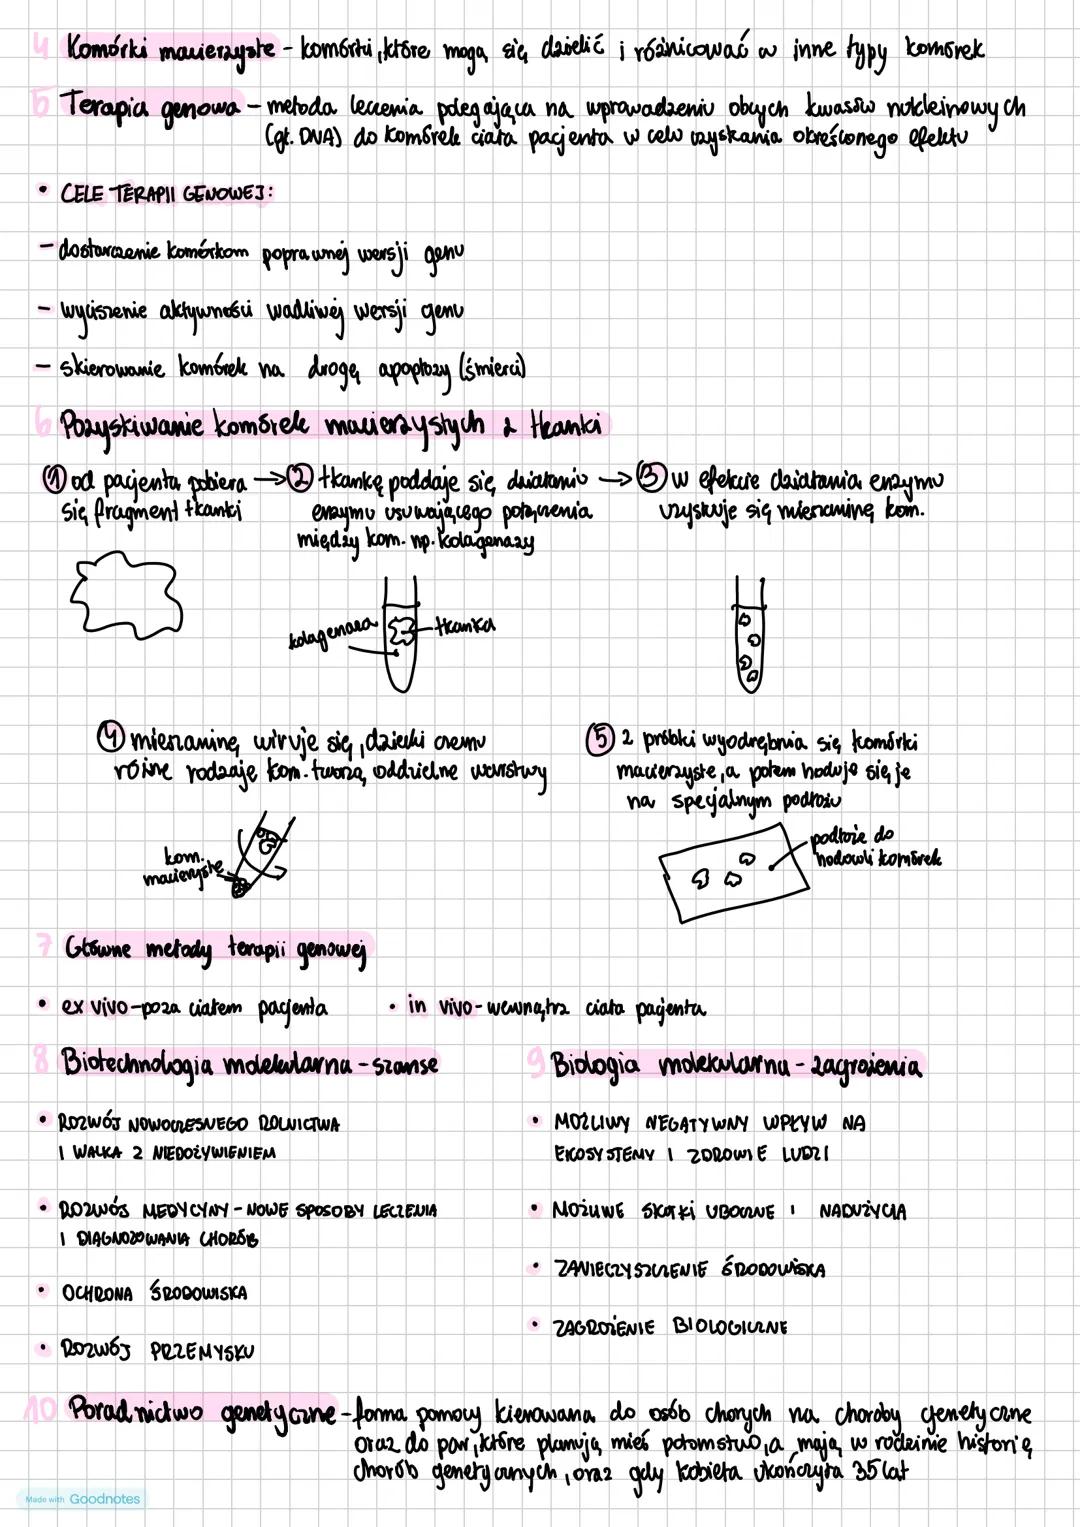 4 Komórki macierzyste - komórki, które mogą się dzielić i różnicować w inne typy komórek
5 Terapia genowa - metoda leczenia polegająca na wprowadzeniu obcych kwasów nukleinowych
(gł. DNA) do komórek ciała pacjenta w celu uzyskania określonego efektu
• CELE TERAPII GENOWEJ:
- dostarczenie komórkom poprawnej wersji genu
- wyciszenie aktywności wadliwej wersji genu
- skierowanie komórek na drogę apoptozy (śmierci)
6 Pozyskiwanie komórek macierzystych z tkanki
① od pacjenta pobiera → ② tkankę poddaje się działaniu → ③ w efekcie działania enzymu
się fragment tkanki enzymu usuwającego połączenia uzyskuje się mieszaninę kom.
między kom. np. kolagenazy
kolagenaza tkanka
④ mieszaninę wiruje się, dzięki czemu
różne rodzaje kom. tworzą oddzielne warstwy
⑤ z próbki wyodrębnia się komórki
macierzyste, a potem hoduje się je
na specjalnym podłożu
kom.
macierzyste
podłoże do
hodowli komórek
7 Główne metody terapii genowej
• ex vivo - poza ciałem pacjenta • in vivo - wewnątrz ciała pacjenta
8 Biotechnologia molekularna - szanse
• ROZWÓJ NOWOCZESNEGO ROLNICTWA
I WALKA Z NIEDOŻYWIENIEM
• ROZWÓJ MEDYCYNY - NOWE SPOSOBY LECZENIA
I DIAGNOZOWANIA CHORÓB
• OCHRONA ŚRODOWISKA
• ROZWÓJ PRZEMYSŁU
9 Biologia molekularna - zagrożenia
• MOŻLIWY NEGATYWNY WPŁYW NA
EKOSYSTEMY I ZDROWIE LUDZI
• MOŻLIWE SKUTKI UBOCZNE I NADUŻYCIA
• ZANIECZYSZCZENIE ŚRODOWISKA
• ZAGROŻENIE BIOLOGICZNE
10 Poradnictwo genetyczne - forma pomocy kierowana do osób chorych na choroby genetyczne
oraz do par, które planują mieć potomstwo, a mają w rodzinie historię
chorób genetycznych, oraz gdy kobieta ukończyła 35 lat
Made with Goodnotes